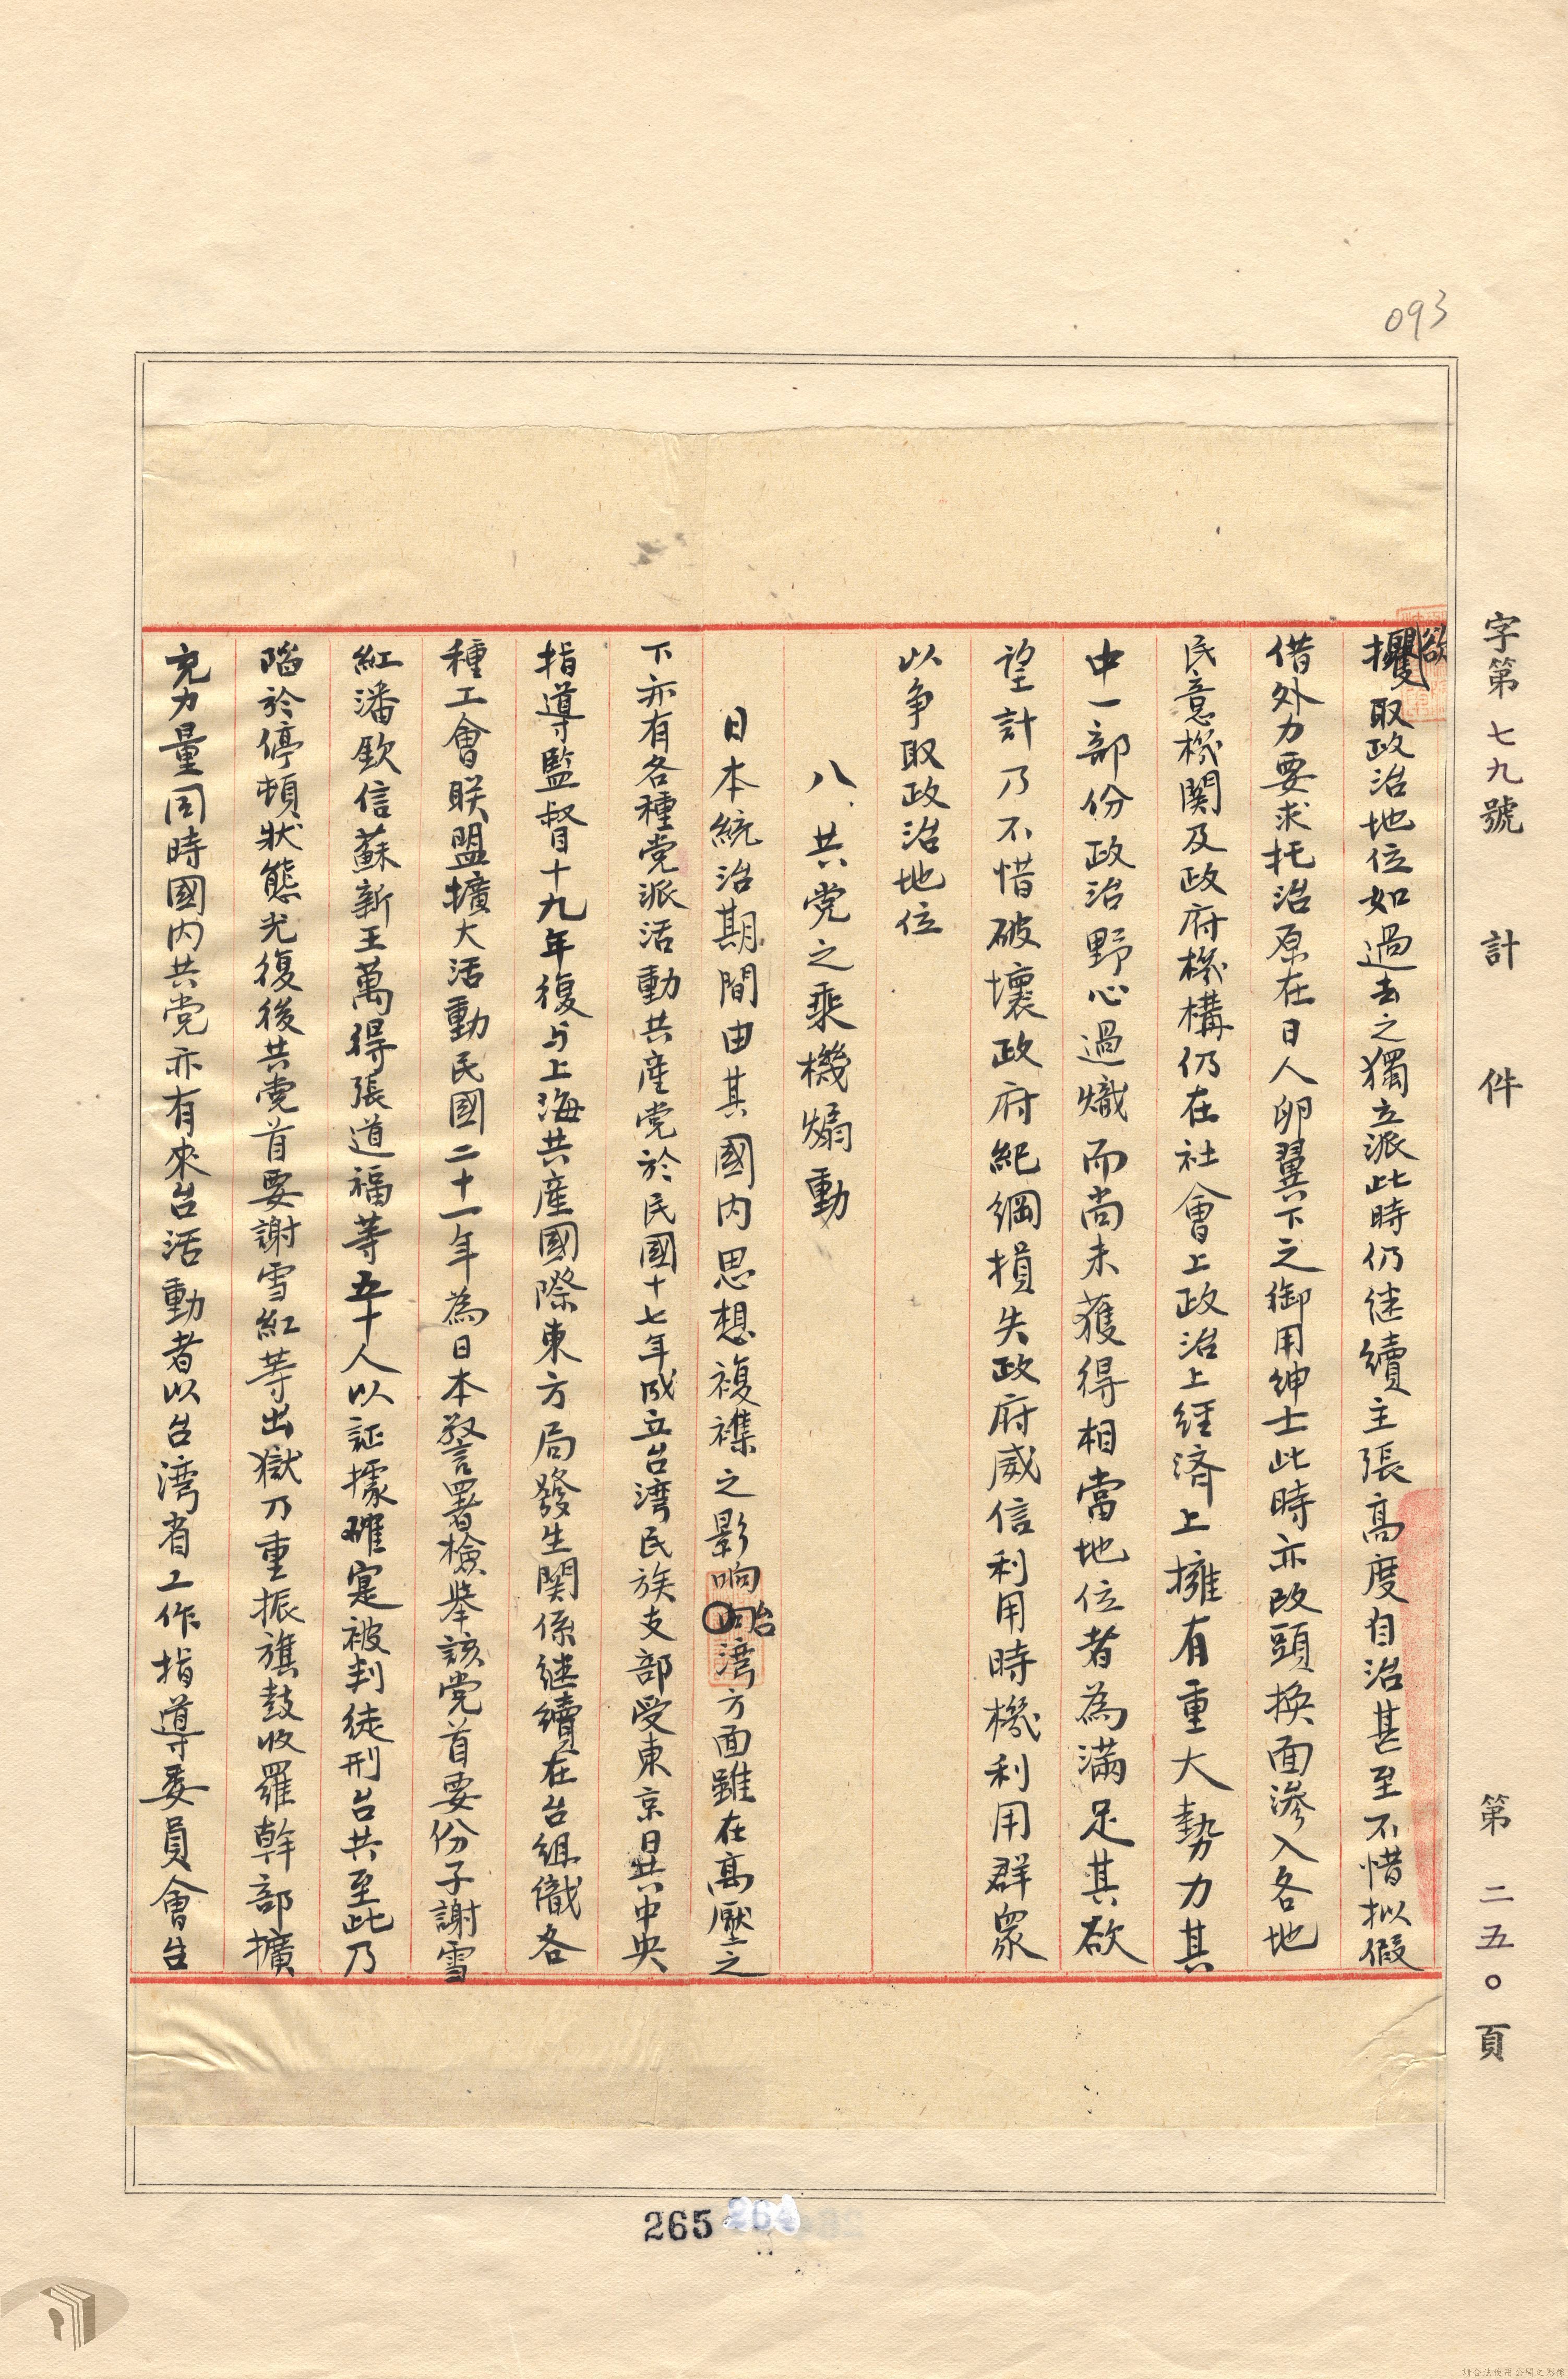 093
字第七九號 計 件 第二五〇頁
欲
攫取政治地位如過去之獨立派此時仍继續主張高度自治甚至不惜拟假
借外力要求托治原在日人卵翼下之御用紳士此時亦改頭换面渗入各地
民意機関及政府機構仍在社會上政治上経済上擁有重大勢力其
中一部份政治野心過熾而尚未獲得相當地位者為滿足其欲
望計乃不惜破壞政府紀綱損失政府威信利用時機利用群眾
以爭取政治地位
八、共党之乘機煽動
日本統治期間由其國内思想複襍之影响台湾方面雖在高壓之
下亦有各種党派活動共產党於民國十七年成立台湾民族支部受東京日共中央
指導監督十九年復与上海共產國際東方局發生関係继續在台組織各
種工會联盟擴大活動民國二十一年為日本警署檢举該党首要份子謝雪
紅潘欽信蘇新王萬得張道福等五十人以証據確寔被判徒刑台共至此乃
陷於停頓狀態光復後共党首要謝雪紅等出獄乃重振旗鼓收羅幹部擴
充力量同時國内共党亦有來台活動者以台湾省工作指導委員會台
265 264
請合法使用公開之影像